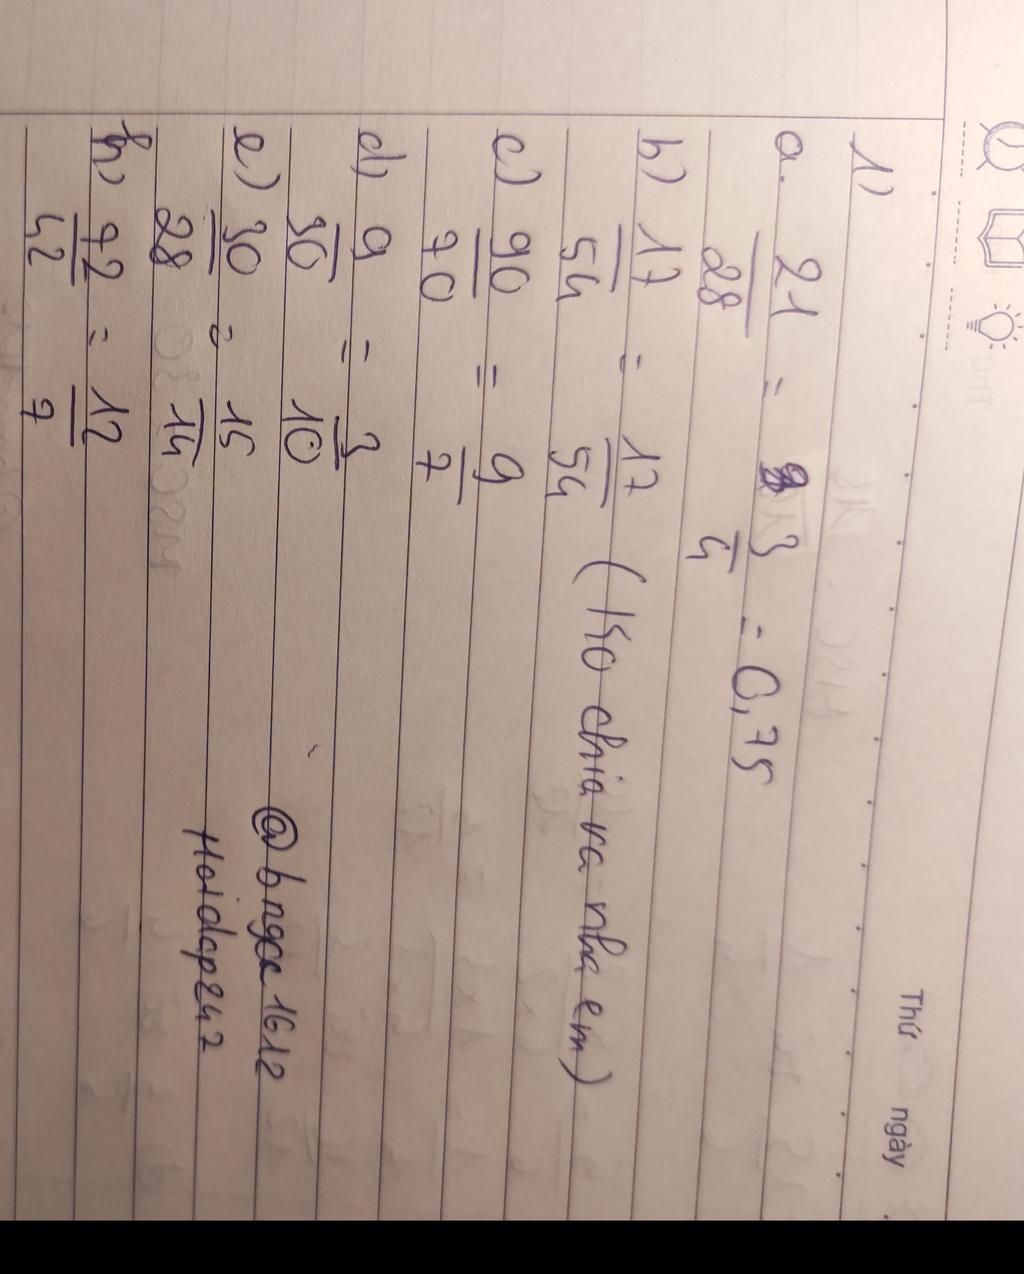 Thứ ngày
1)
a. 21/28 = 3/4 = 0,75
b) 17/54 = 17/54 (K40 chia ra nha em)
c) 90/70 = 9/7
d) 9/30 = 3/10
e) 30/28 = 15/14
h) 72/42 = 12/7
@bngoc1612
Hoidap247